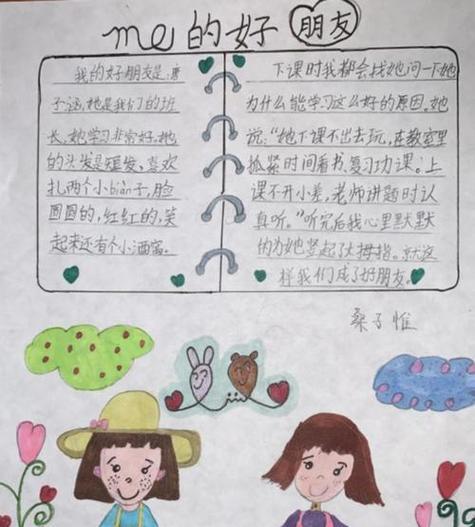 me的好朋友
我的好朋友是:唐
子涵,她是我们的班
长,她学习非常好,她
的头发是短发,喜欢
扎两个小biàn子,脸
圆圆的,红红的,笑
起来还有个小酒窝。
下课时我都会找她问一下她
为什么能学习这么好的原因。她
说:“她下课不出去玩,在教室里
抓紧时间看书、复习功课。上
课不开小差,老师讲题时认
真听。”听完后我心里默默
为她竖起了大拇指。就这
样我们成了好朋友。
桑子惟